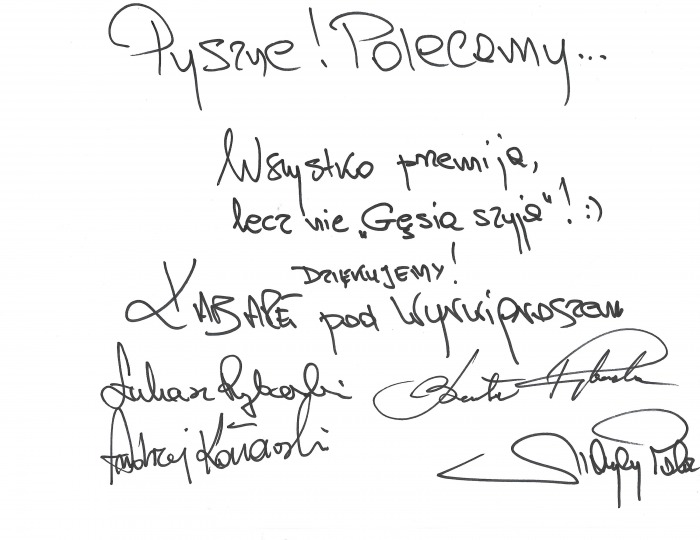 Pyszne! Polecamy...
Wszystko przemija,
lecz nie „Gęsia szyja"! :)
DZIĘKUJEMY!
KABARET pod Wyrwigroszem
Łukasz Rybarski
Andrzej Kozłowski